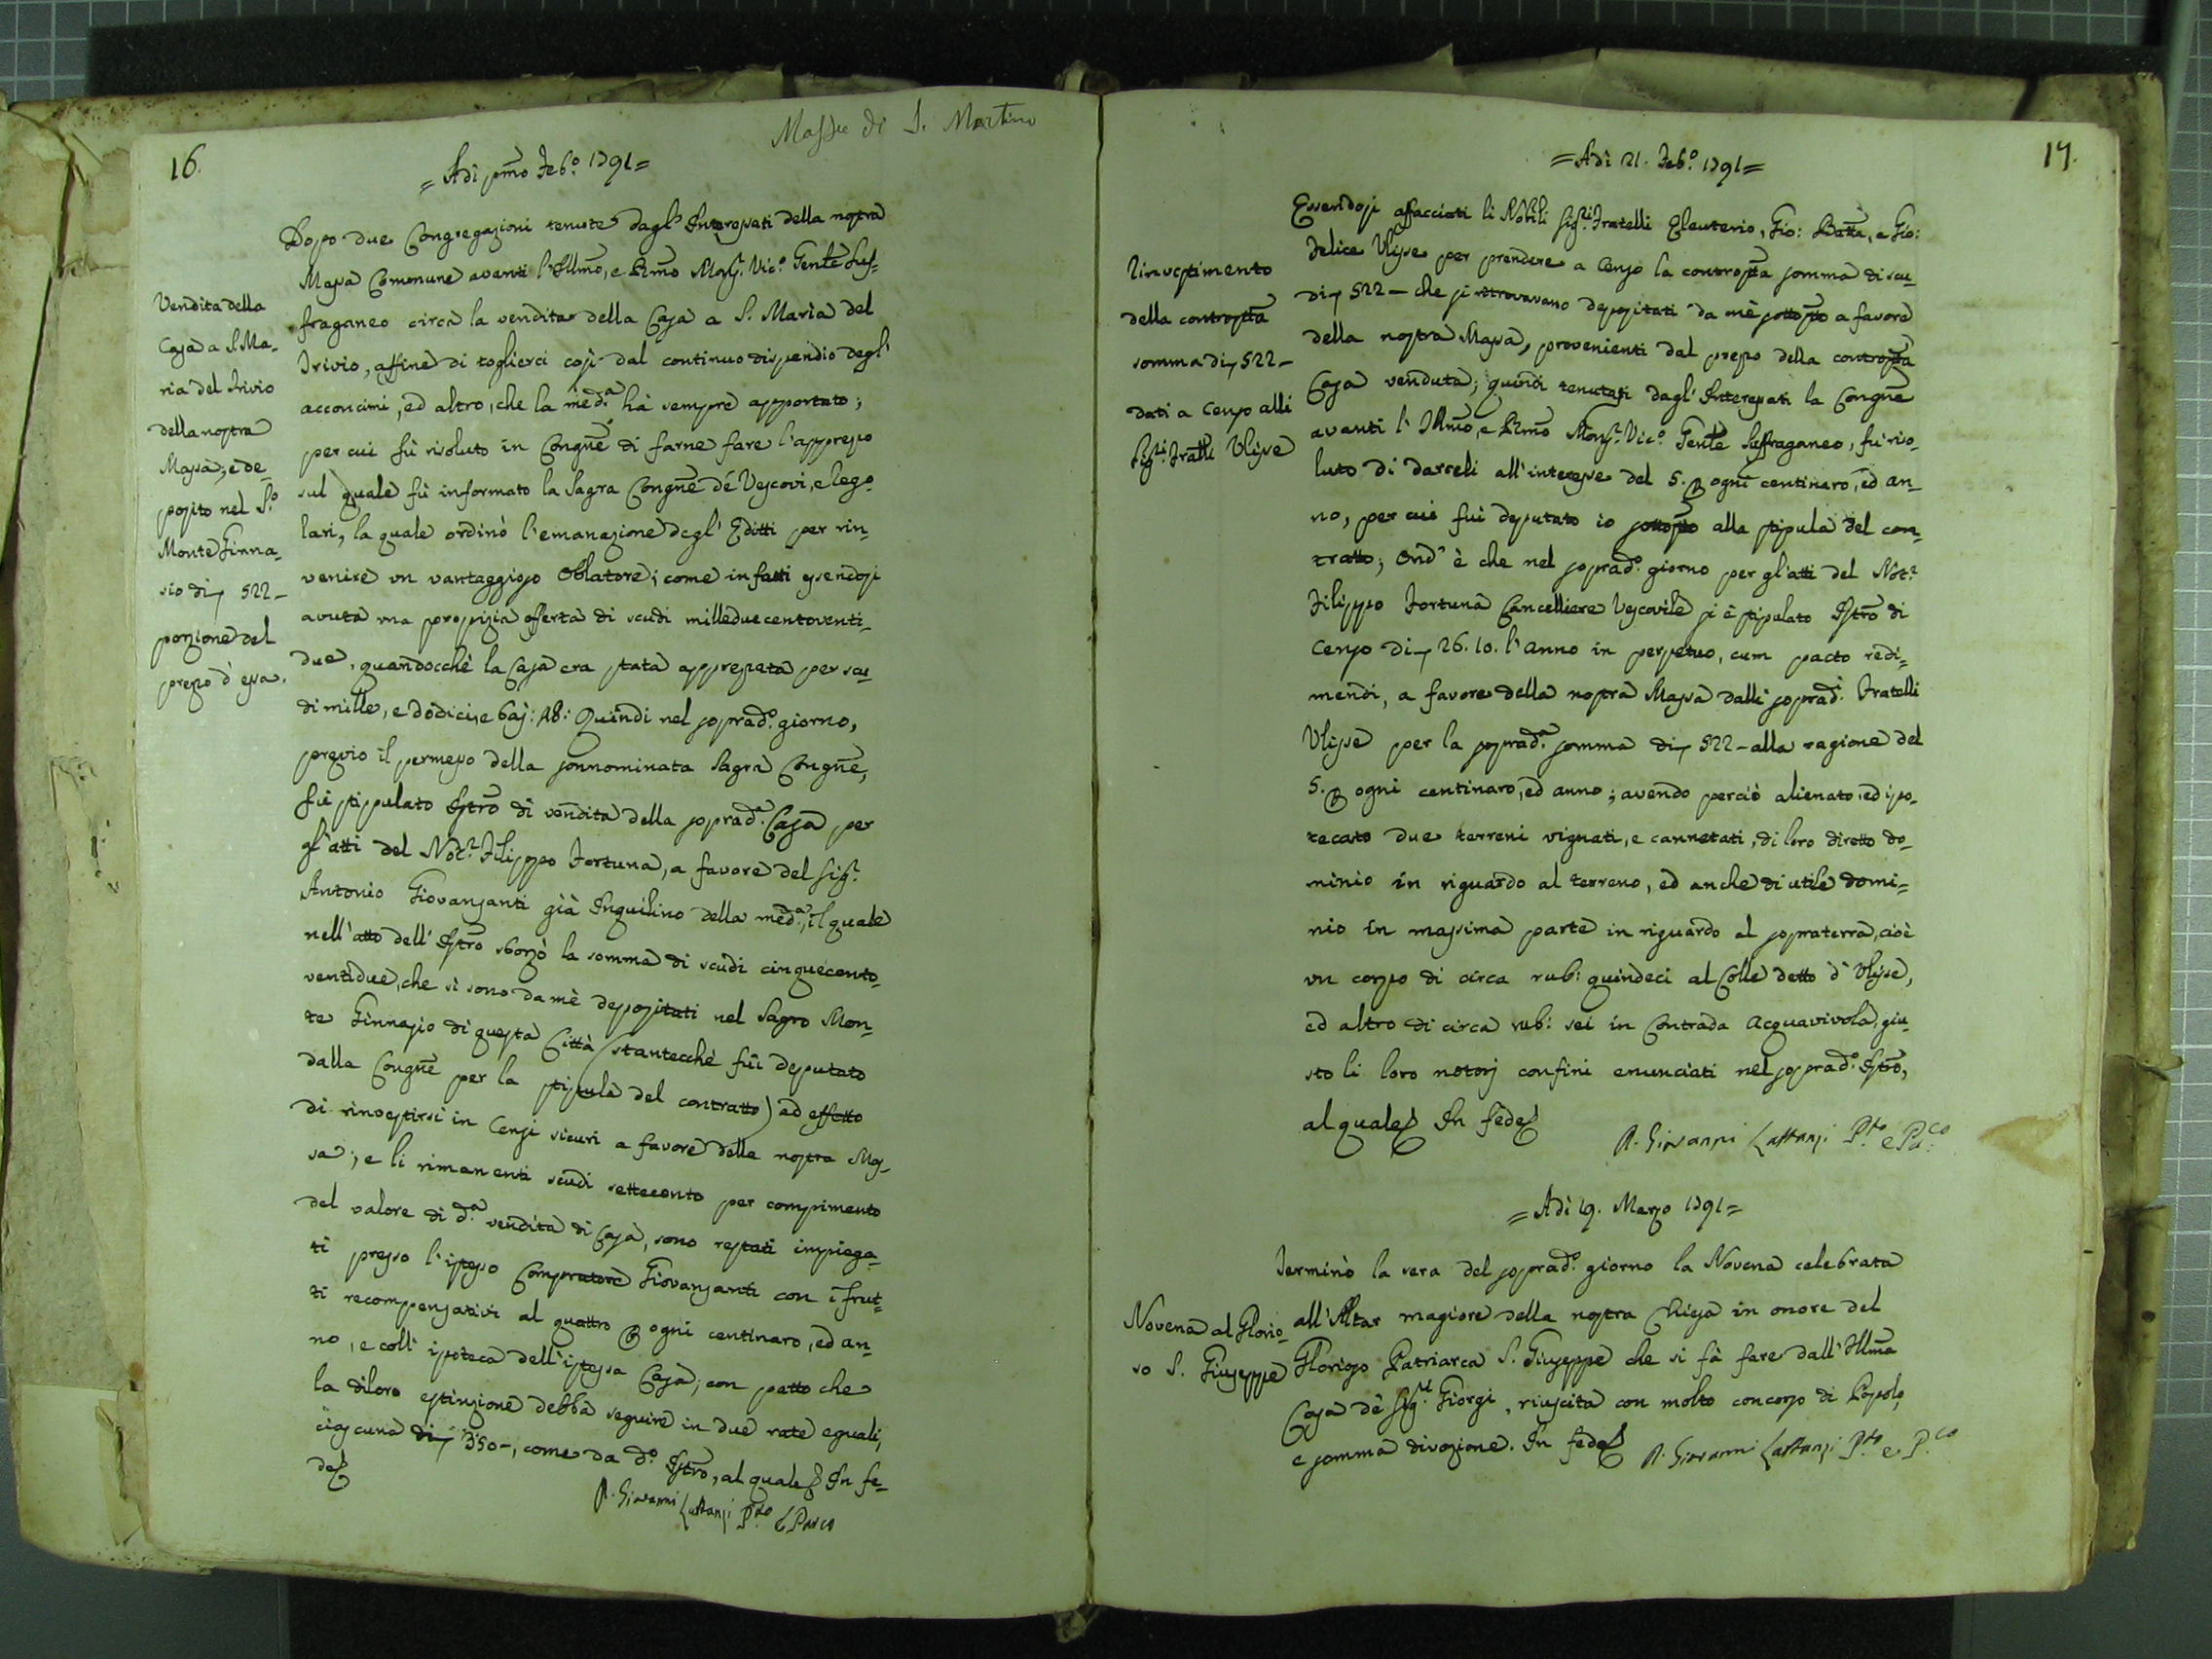 Masse di S. Martino
16.
= Adì pmo Feb.o 1791 =
Dopo due Congregazioni tenute dagl' Interessati della nostra
Massa Comonune avanti l'Illmo, e Rmo Monsr. Vic.o Genle Suf-
fraganeo circa la vendita della Casa a S. Maria del
Trivio, affine di toglierci così dal continuo dispendio degl'
acconcimi, ed altro, che la med.a hà sempre apportato;
per cui fù risoluto in Congne di farne fare l'apprezzo
sul quale fù informato la Sagra Congne dé Vescovi, e Rego-
lari, la quale ordinò l'emanazione degl' Editti per rin-
venire un vantaggioso Oblatore; come in fatti essendosi
avuta una propizia offerta di scudi milleduecentoventi-
due, quandocchè la Casa era stata apprezzata per scu-
di mille, e dodici, e baj: 48: Quindi nel soprad.o giorno,
previo il permesso della sonnominata Sagra Congne,
fù stipulato Istro di vendita della soprad.a Casa per
gl'atti del Not.r Filippo Fortuna, a favore del Sig.r
Antonio Giovansanti già Inquilino della med.a, il quale
nell'atto dell' Istro sborzò la somma di scudi cinquecento-
ventidue, che si sono da mè depositati nel Sagro Mon-
te Ginnasio di questa Città (stantecchè fui deputato
dalla Congne per la stipula del contratto) ad effetto
di rinvestirsi in Censi sicuri a favore della nostra Mas-
sa; e li rimanenti scudi settecento per compimento
del valore di d.a vendita di Casa, sono restati impiega-
ti presso l'istesso Compratore Giovansanti con i frut-
ti recompensativi al quattro per ogni centinaro, ed an-
no, e coll' ipoteca dell'istessa Casa; con patto che
la diloro estinzione debba seguire in due rate eguali,
ciascuna di 350-, come da d.o Istro, al quale In fe-
de
D. Giovanni Lattanzi P.to e Parco
Vendita della
Casa a S. Ma-
ria del Trivio
della nostra
Massa; e de-
posito nel S.o
Monte Ginna-
sio di 522-
porzione del
prezzo d'essa.
17.
= Adì 21. Feb.o 1791 =
Essendosi affacciati li Nobili Sig.ri Fratelli Eleuterio, Gio: Batta, e Gio:
Felice Ulisse per prendere a Censo la controstta somma di scu-
di 522- che si ritrovavano depositati da mè sottostto a favore
della nostra Massa, provenienti dal prezzo della controstta
Casa venduta; quindi tenutasi dagl' Interessati la Congne
avanti l'Illmo, e Rmo Monsr. Vic.o Genle Suffraganeo, fù riso-
luto di darceli all'interesse del 5. per ogni centinaro, ed an-
no, per cui fui deputato io sottostto alla stipula del con-
tratto; Ond' è che nel soprad.o giorno per gl'atti del Not.r
Filippo Fortuna Cancelliere Vescovile si è stipulato Istro di
Censo di 26.10. l'anno in perpetuo, cum pacto redi-
mendi, a favore della nostra Massa dalli soprad.i Fratelli
Ulisse per la soprad.a somma di 522- alla ragione del
5. per ogni centinaro, ed anno; avendo perciò alienato, ed ipo-
tecato due terreni vignati, e cannetati, di loro diretto do-
minio in riguardo al terreno, ed anche di utile domi-
nio in massima parte in riguardo al sopraterra, cioè
un corpo di circa rub: quindeci al Colle detto d'Ulisse,
ed altro di circa rub: sei in Contrada Acquavivola, giu-
sto li loro notorj confini enunciati nel soprad.o Istro,
al quale In fede
D. Giovanni Lattanzi P.to e Pa.co
Rinvestimento
della controstta
somma di 522-
dati a Censo alli
Sig.ri Fratlli Ulisse
= Adì 19. Marzo 1791 =
Terminò la sera del soprad.o giorno la Novena celebrata
all'Altar magiore della nostra Chiesa in onore del
Glorioso Patriarca S. Giuseppe che si fà fare dall'Illma
Casa dè Sig.ri Giorgi, riuscita con molto concorso di Popolo,
e somma divozione. In fede D. Giovanni Lattanzi P.to e P.co
Novena al Glorio-
so S. Giuseppe